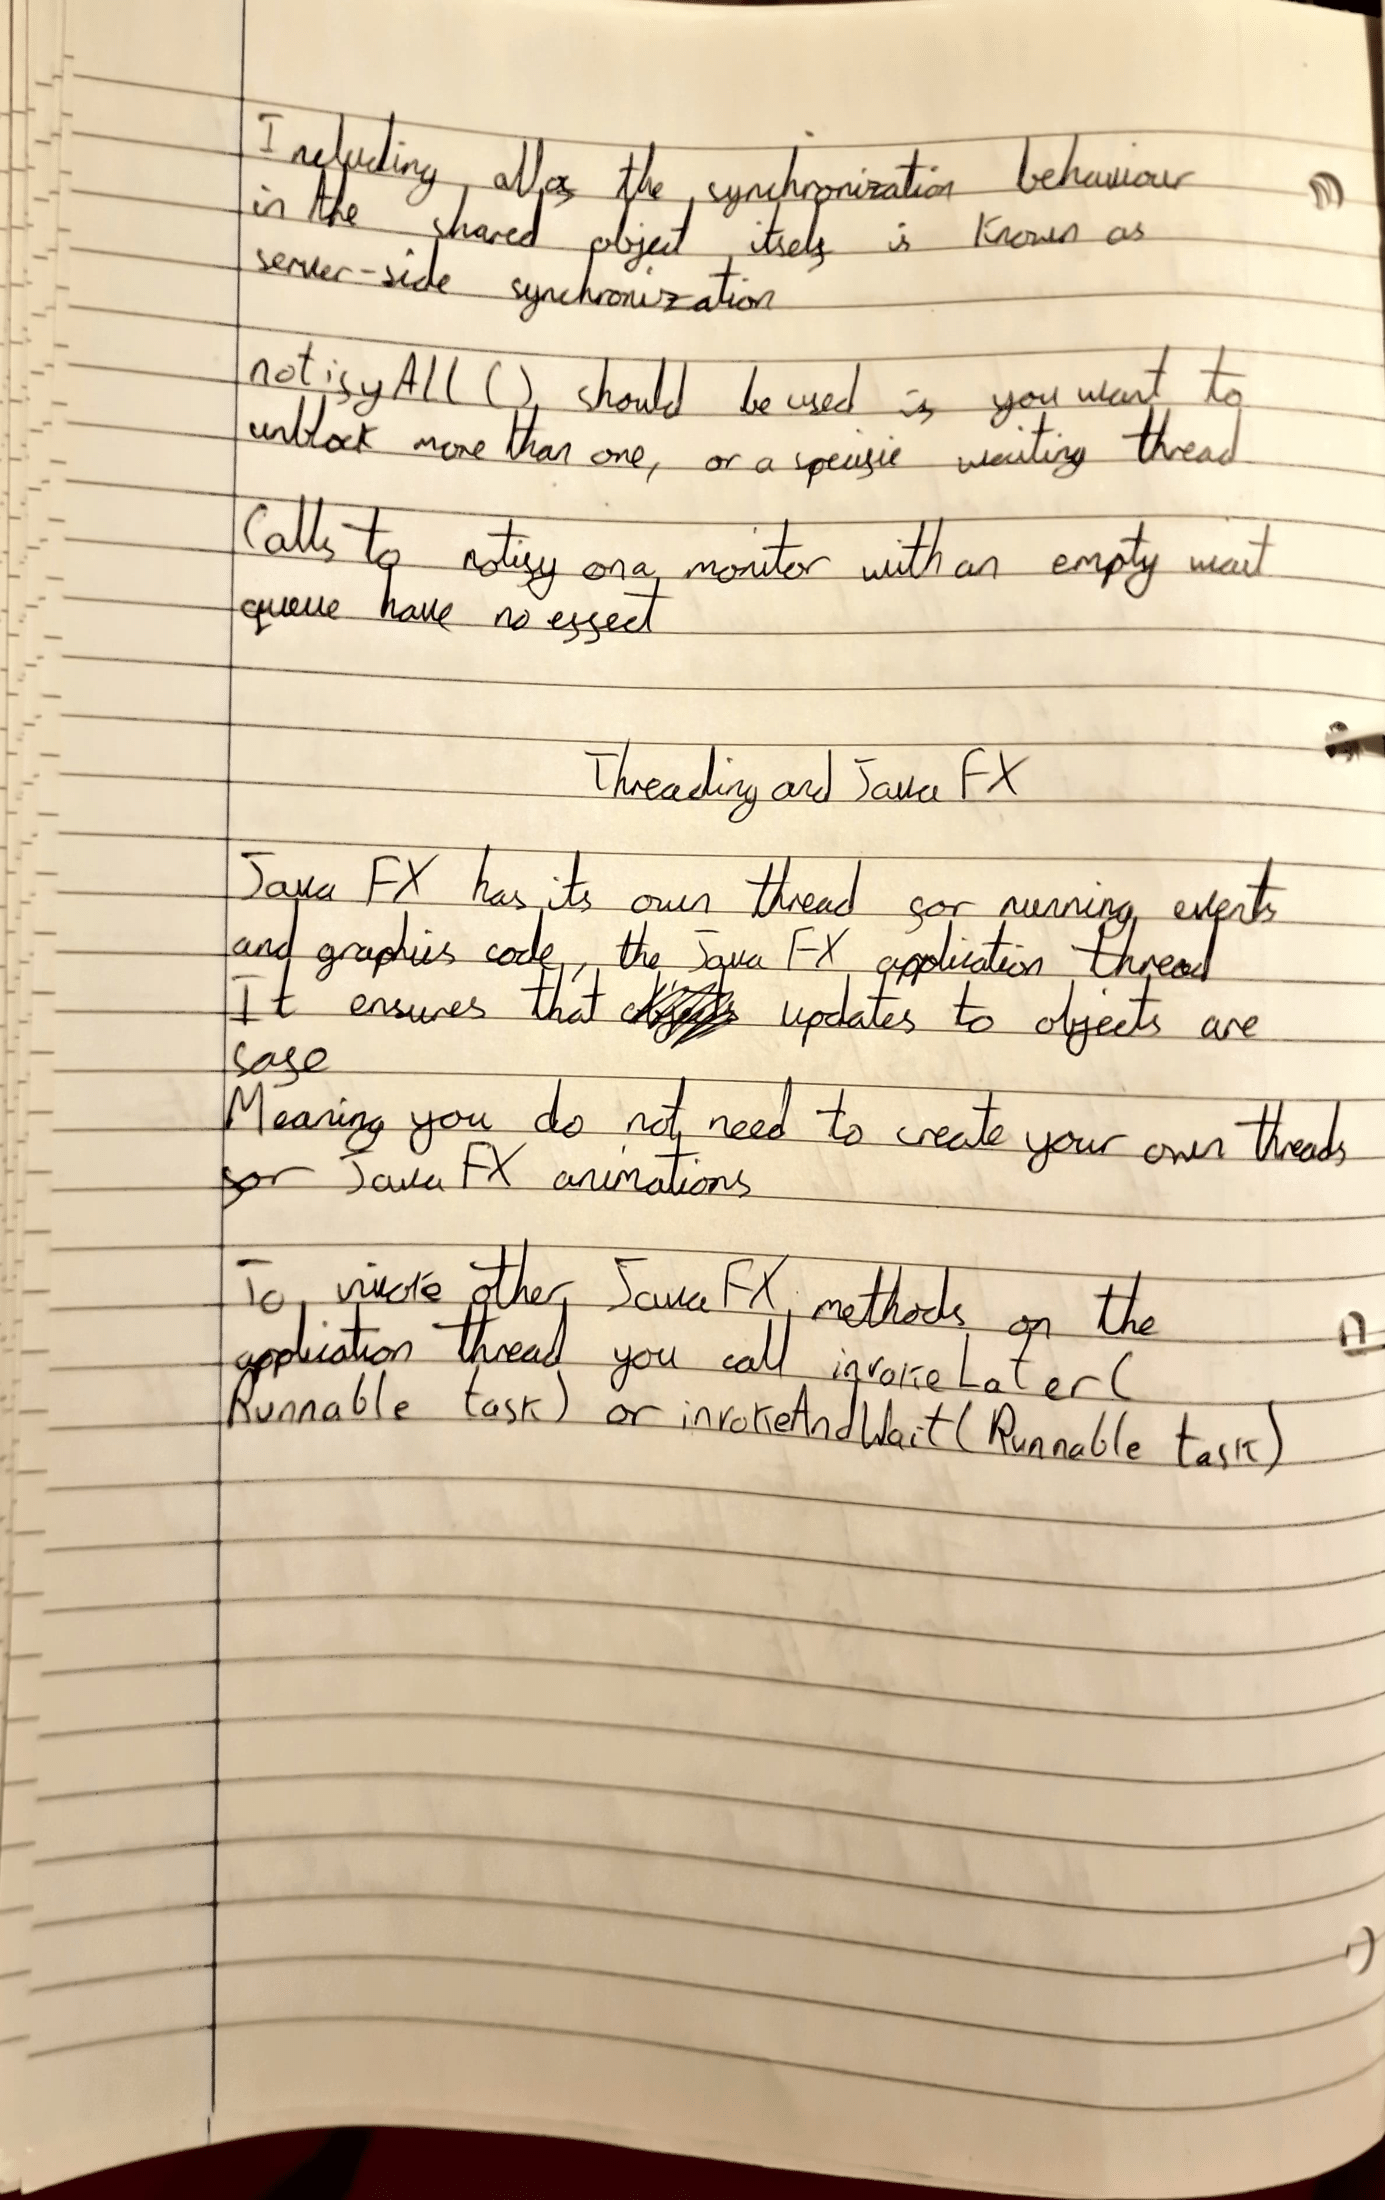 Including all of the synchronization behaviour
in the shared object itself is known as
server-side synchronization
notifyAll() should be used if you want to
unblock more than one, or a specific waiting thread
Calls to notify on a monitor with an empty wait
queue have no effect
Threading and Java FX
Java FX has its own thread for running events
and graphics code, the Java FX application thread
It ensures that updates to objects are
safe
Meaning you do not need to create your own threads
for Java FX animations
To invoke other Java FX methods on the
application thread you call invokeLater(
Runnable task) or invokeAndWait(Runnable task)